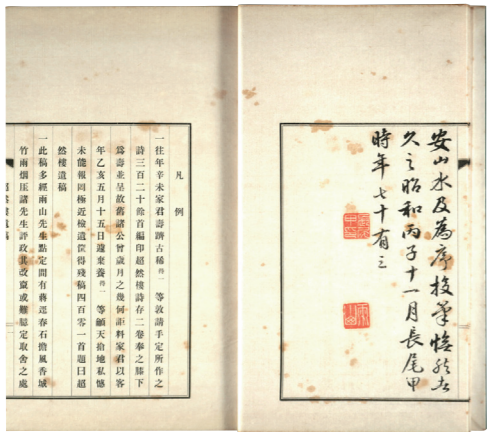 安山水及為序投筆悵然者
久之昭和丙子十一月長尾甲
時年七十有三
凡例
一往年辛未家君壽躋古稀得一等敦請手定所作之
詩三百二十餘首編印超然樓詩存二卷奉之膝下
爲壽並呈故舊諸公曾歲月之幾何詎料家君以客
年乙亥五月十五日遽棄養得一等顱天搶地私憾
未能報罔極近檢遺笥得殘稿四百零一首題曰超
然樓遺稿
一此稿多經雨山先生點定間有蔣逕春石擔風香城
竹雨烟厓諸先生評政其改竄或難認定取舍之處